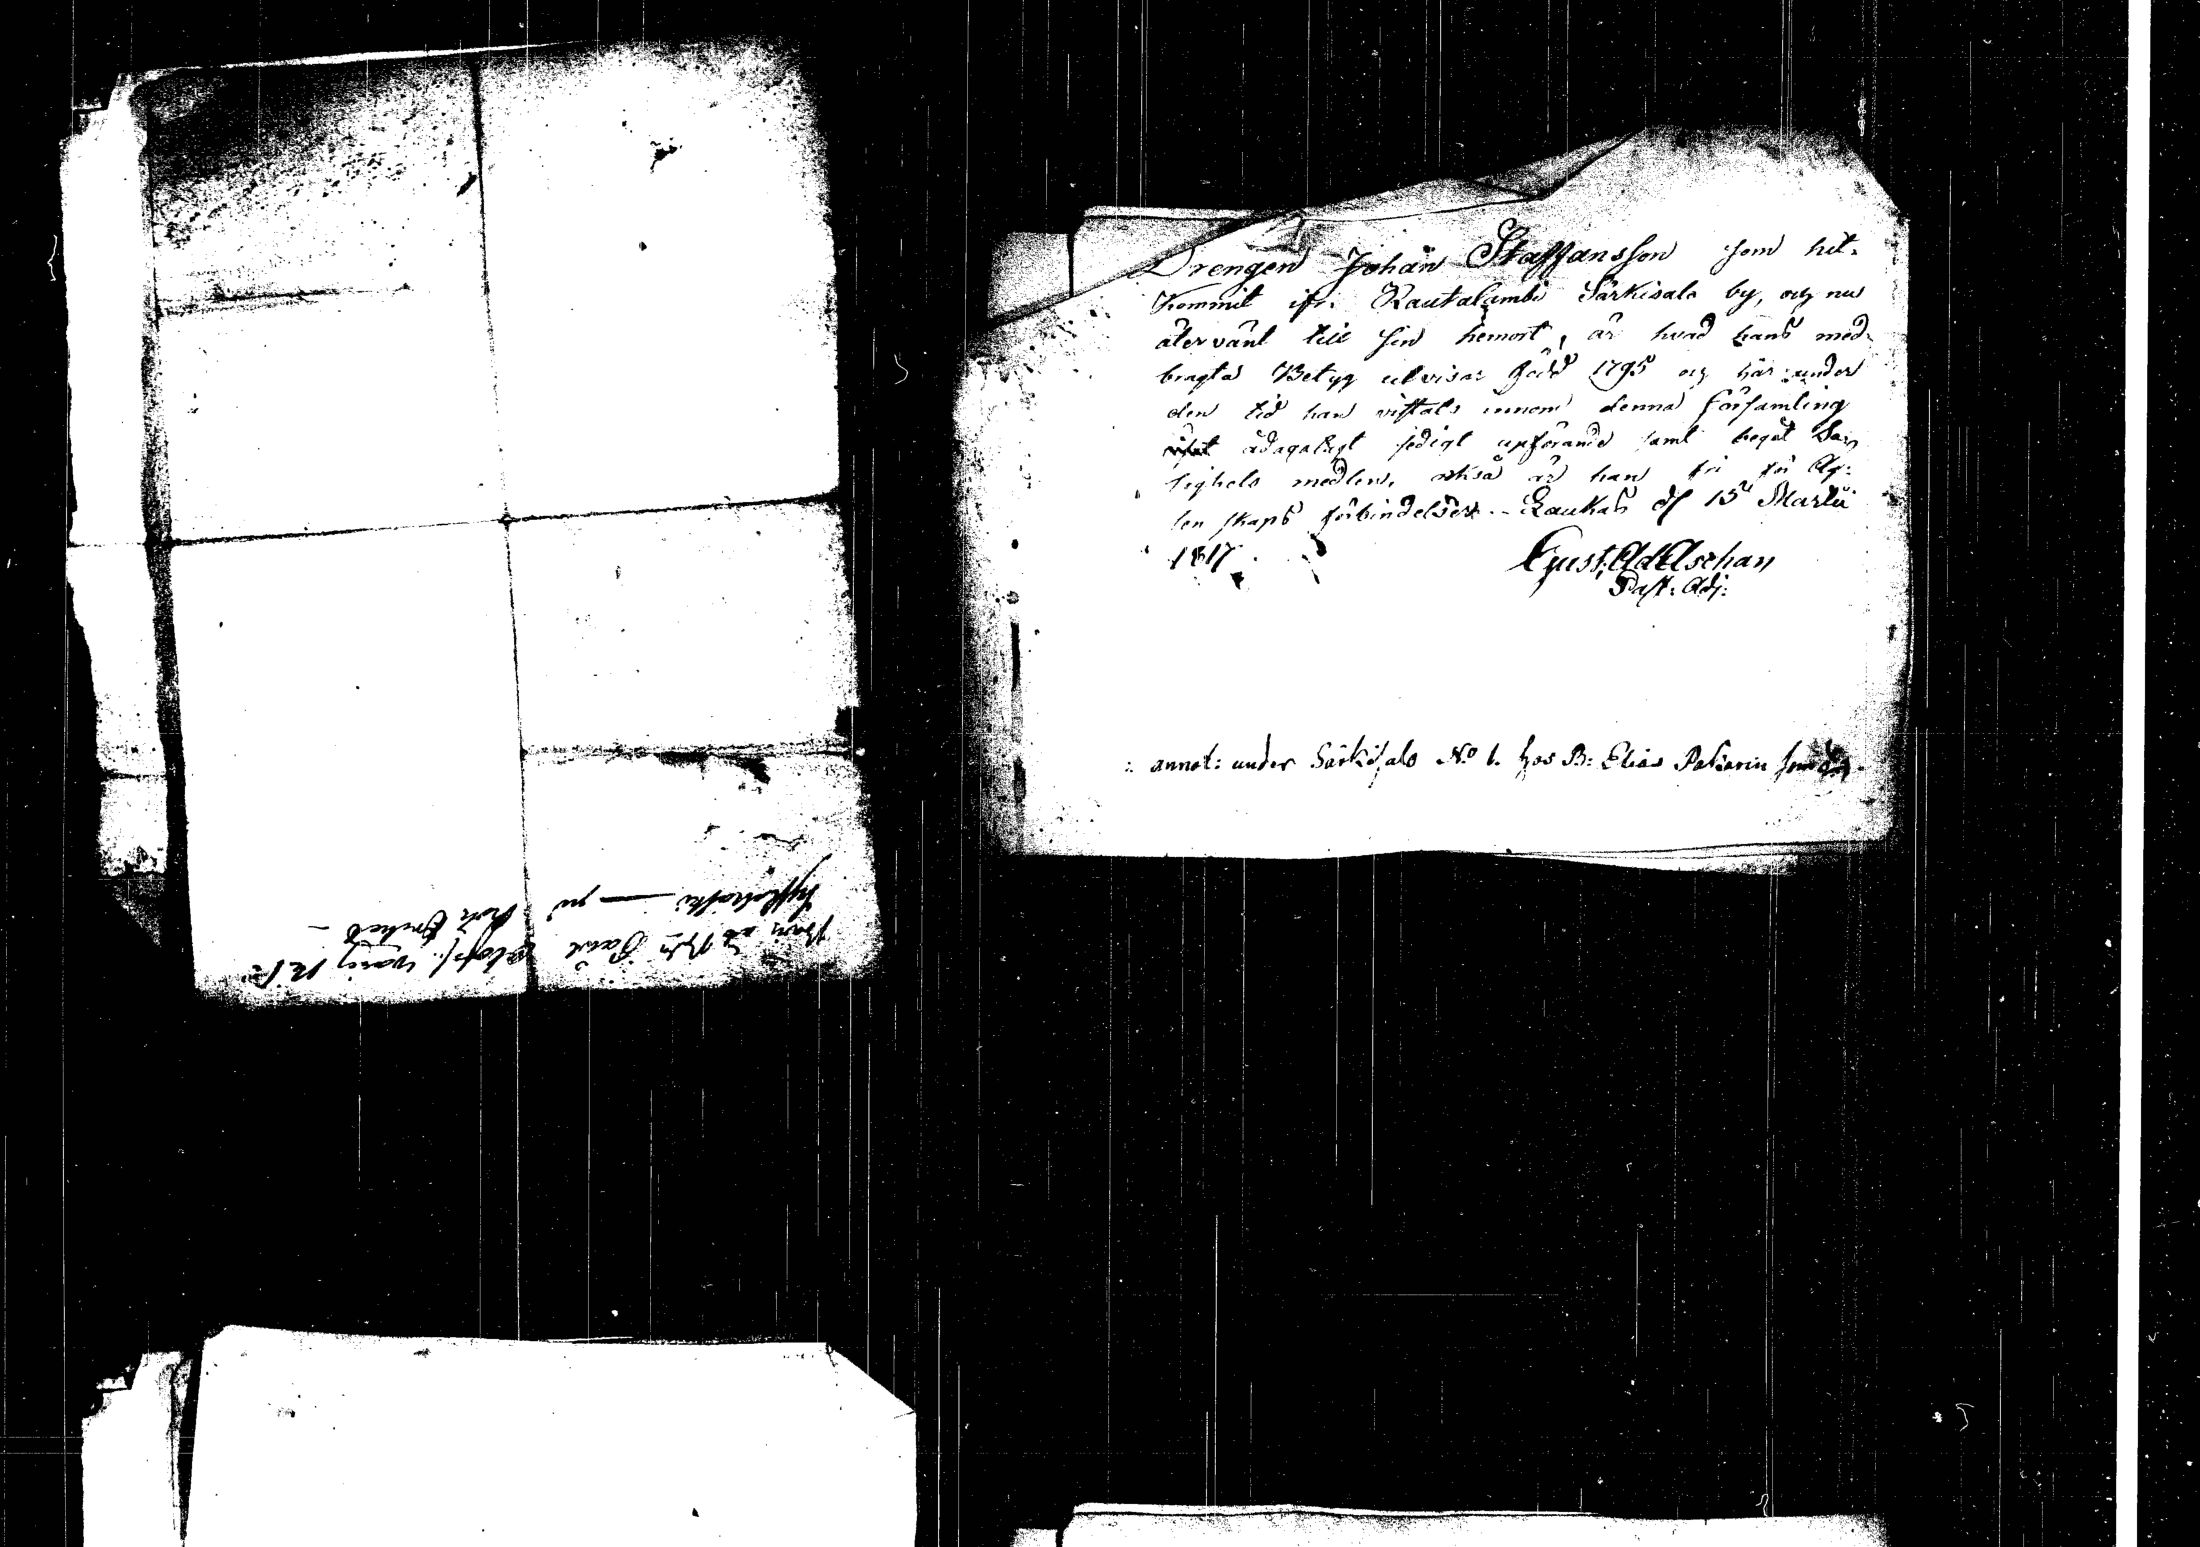 Drengen Johan Staffansson som hit-
kommit ifr. Rautalambi Särkisalo by, och nu
återvänt till sin hemort, är hvad hans med-
bragta Betyg utvisar född 1795 och här under
den tid han vistats innom denna församling
ådagalagt sedigt upförande samt begåt Sa-
lighets medlen, altså är han fri för Äg-
ten skaps förbindelser. Laukas d. 15 Martii
1817. Gust. Ad. Aschan
Past: Adj:
annot: under Särkisalo No 1. hos B: Elias Pakarin